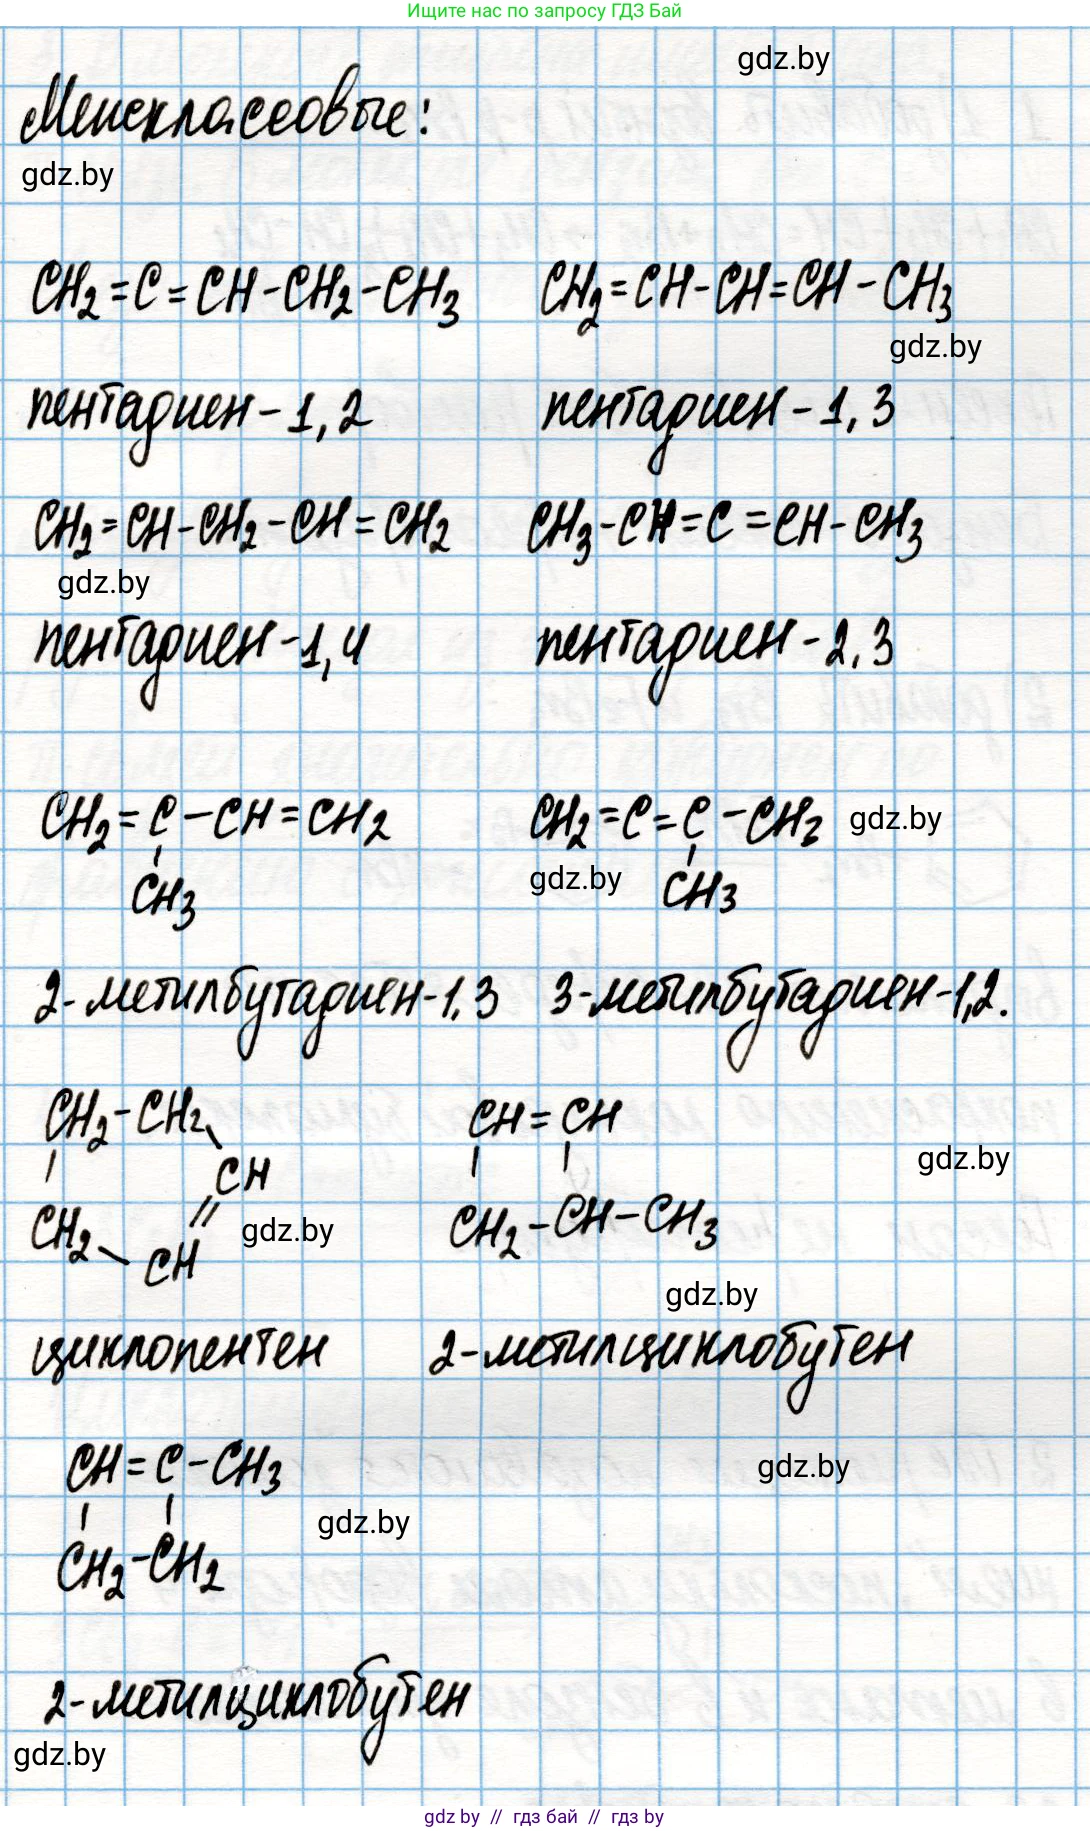 Ищите нас по запросу ГДЗ Бай
gdz.by
Межклассовые:
gdz.by
CH2=C=CH-CH2-CH3 CH2=CH-CH=CH-CH3
gdz.by
пентадиен-1,2 пентадиен-1,3
CH2=CH-CH2-CH=CH2 CH3-CH=C=CH-CH3
gdz.by
пентадиен-1,4 пентадиен-2,3
CH2=C-CH=CH2 CH2=C=C-CH2 gdz.by
gdz.by
CH3 CH3
2-метилбутадиен-1,3 3-метилбутадиен-1,2.
CH2-CH2 CH=CH
CH gdz.by
CH2 gdz.by CH2-CH-CH3
CH
gdz.by
циклопентен 2-метилциклобутен
CH=C-CH3 gdz.by
gdz.by
CH2-CH2
2-метилциклобутен
gdz.by
gdz by // гдз бай // гдз by